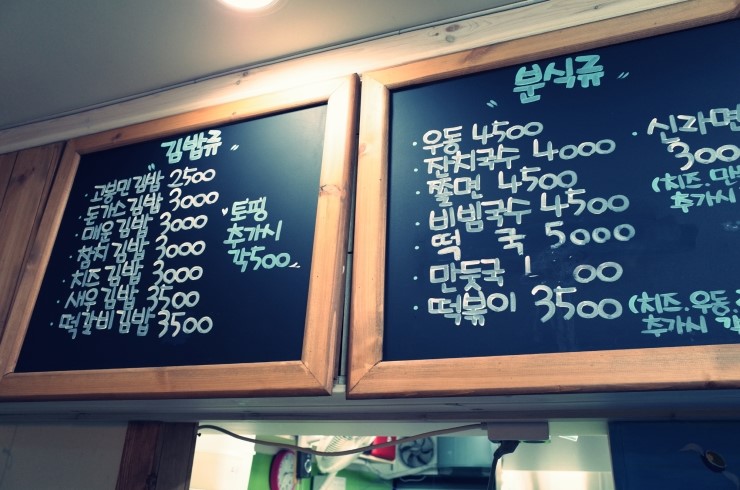 " 김밥류 "
· 고봉민김밥 2500
· 돈가스김밥 3000
· 매운김밥 3000
· 참치김밥 3000
· 치즈김밥 3000
· 새우김밥 3500
· 떡갈비김밥 3500
" 토핑
추가시
각500 "
" 분식류 "
· 우동 4500
· 잔치국수 4000
· 쫄면 4500
· 비빔국수 4500
· 떡 국 5000
· 만둣국 00
· 떡볶이 3500
(치즈.우동.
추가시
· 신라면
300
(치즈.만
추가시